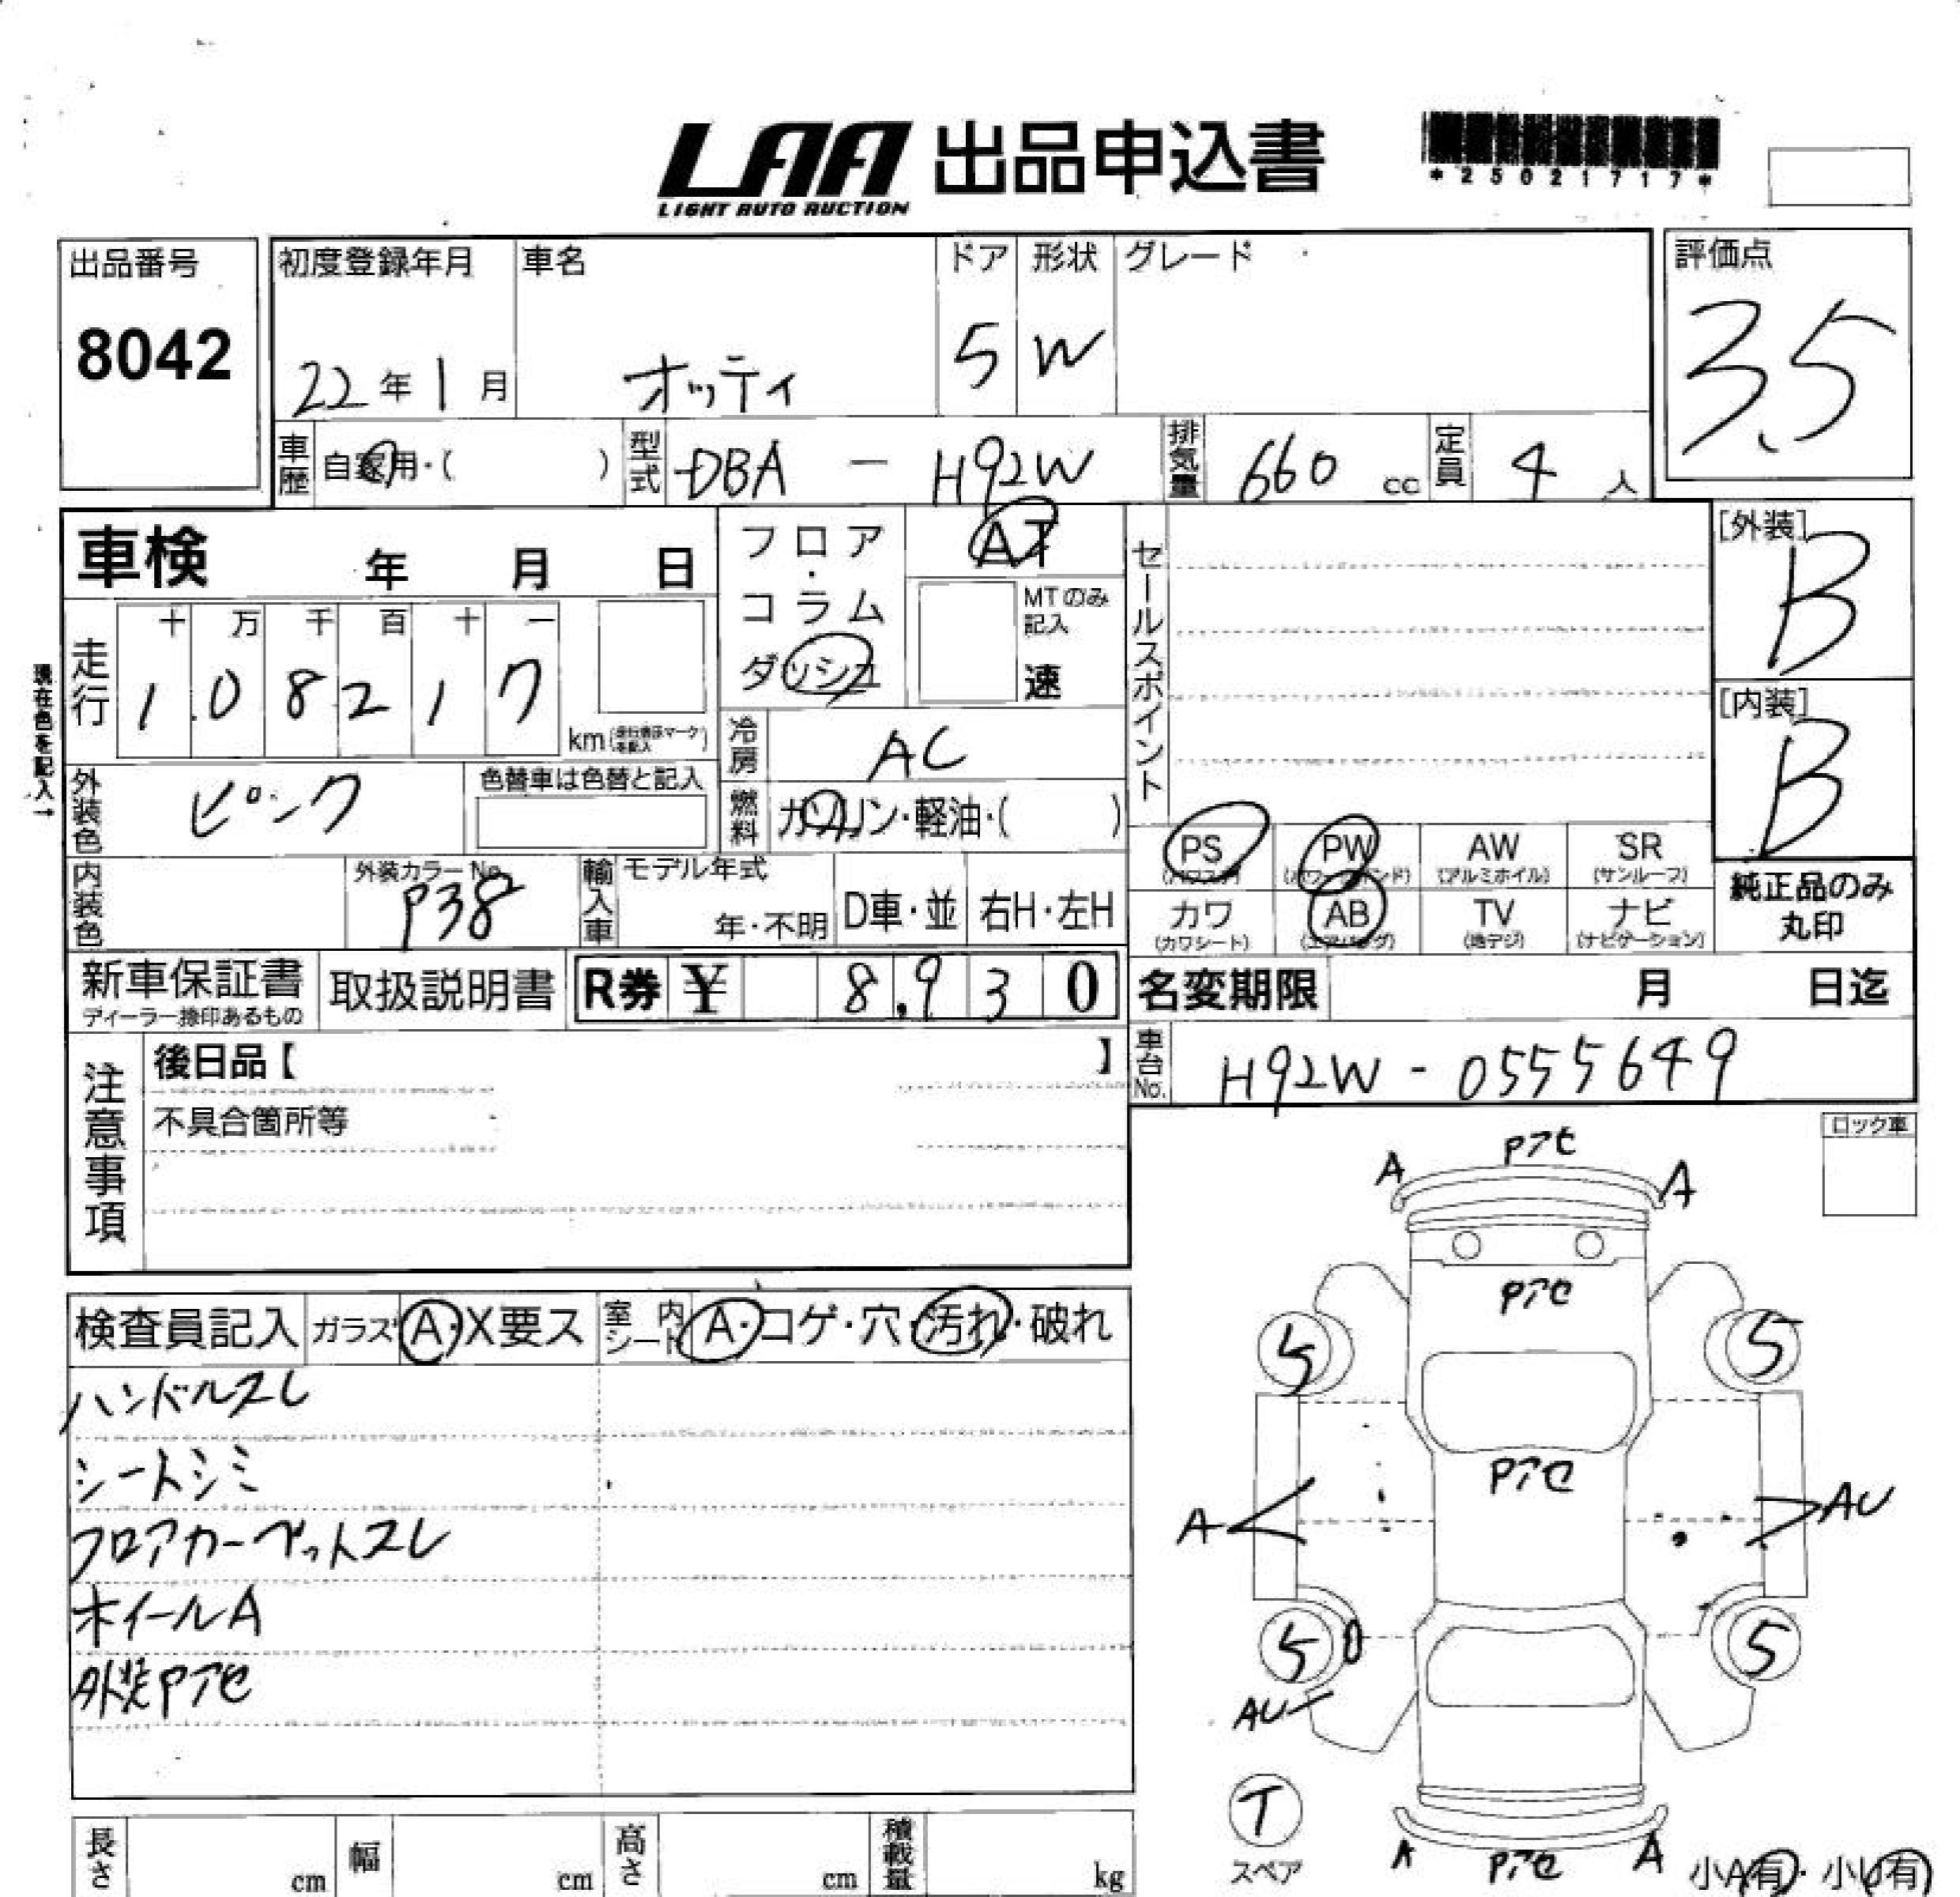 LAA 出品申込書
LIGHT AUTO AUCTION
*25021717*
出品番号
8042
初度登録年月
22年1月
車名
オッティ
ドア
5
形状
W
グレード
評価点
3.5
車歴 自家用・( )
型式 DBA - H92W
排気量 660 cc
定員 4 人
車検 年 月 日
フロア・コラム ダッシュ
AT
MTのみ記入
速
セールスポイント
[外装]
B
[内装]
B
現在色を記入→
走行
十 万 千 百 十 一
1 0 8 2 1 7
km
冷房 AC
外装色 ピンク
色替車は色替と記入
燃料 ガソリン・軽油・( )
PS (パワステ)
PW (パワーウインド)
AW (アルミホイル)
SR (サンルーフ)
カワ (カワシート)
AB (エアバッグ)
TV (地デジ)
ナビ (ナビゲーション)
純正品のみ丸印
内装色
外装カラーNo.
P38
輸入車
モデル年式
年・不明
D車・並
右H・左H
新車保証書
ディーラー捺印あるもの
取扱説明書
R券 ¥ 8,930
名変期限 月 日迄
車台No. H92W - 0555649
注意事項
後日品【 】
不具合箇所等
ロック車
検査員記入
ガラス A・X要ス
室内シート A・コゲ・穴・汚れ・破れ
ハンドルスレ
シートシミ
フロアカーペットスレ
ホイールA
外装Pアセ
Pアセ
A A
Pアセ
5 5
Pアセ
A AU
5 5
AU
T
スペア
A Pアセ A
小A有・小U有
長さ cm
幅 cm
高さ cm
積載量 kg